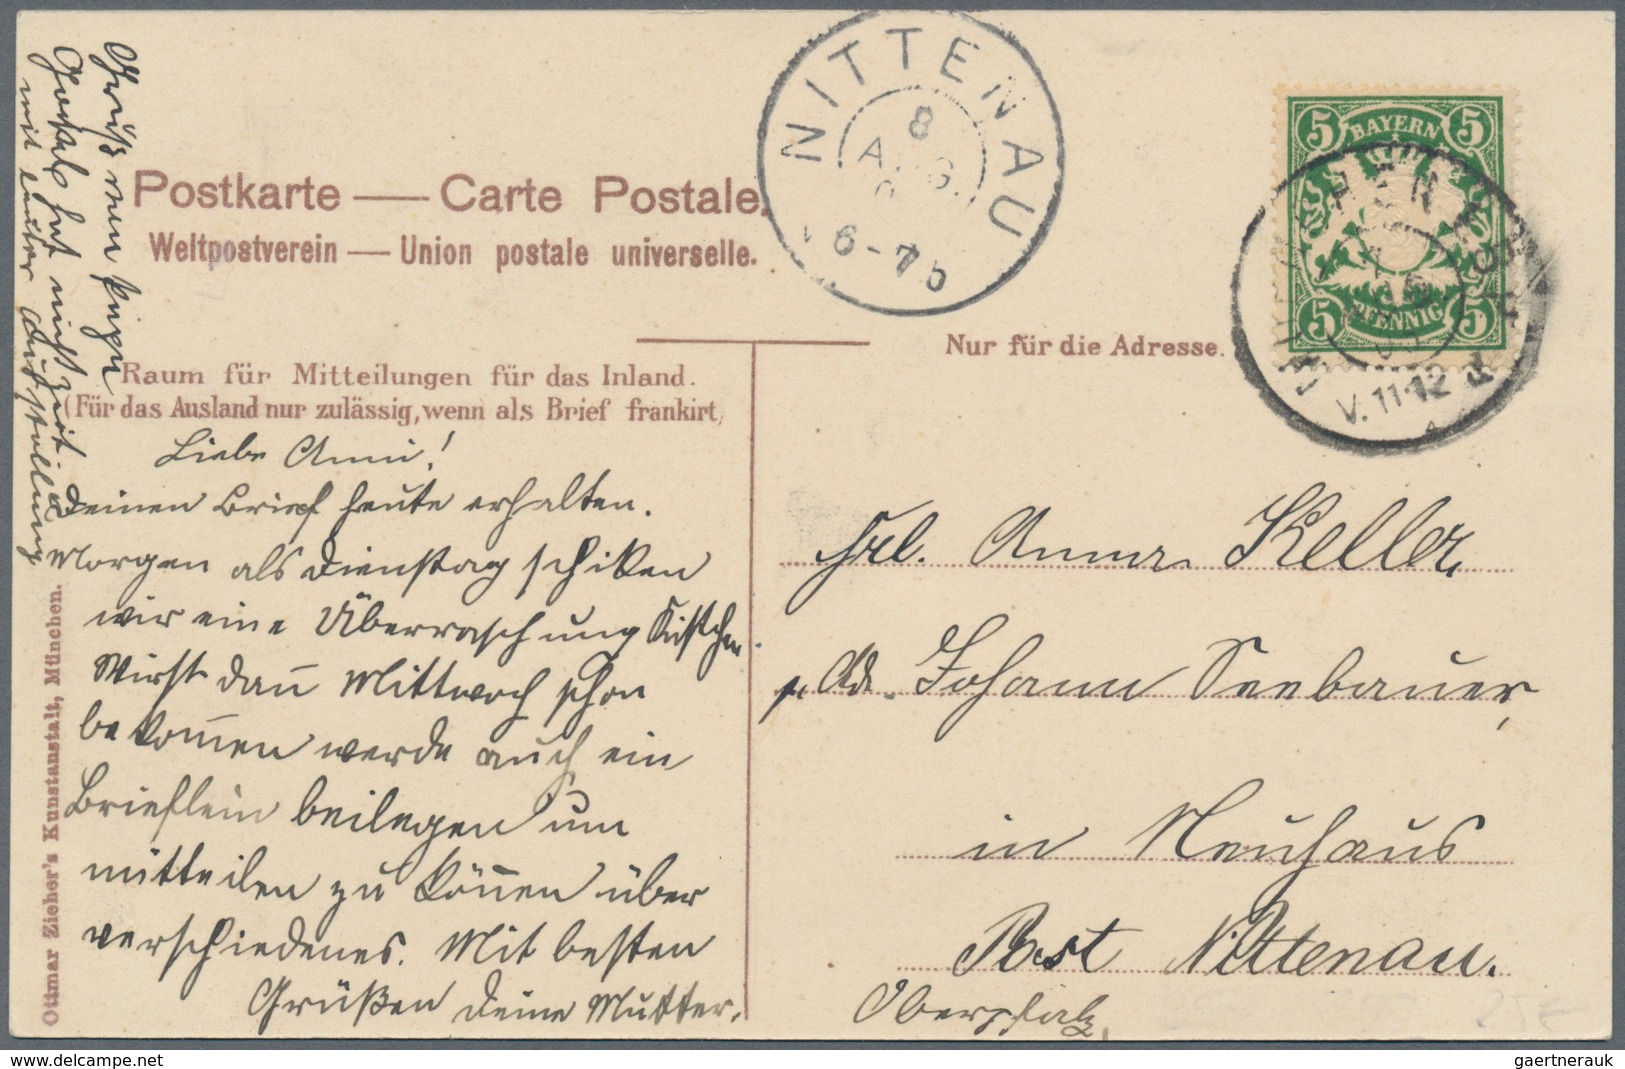 Postkarte — Carte Postale.
Weltpostverein — Union postale universelle.
NITTENAU
8
AUG
6-7
BAYERN
5 5
5 5
PFENNIG
V. 11-12
Nur für die Adresse.
Raum für Mitteilungen für das Inland.
(Für das Ausland nur zulässig, wenn als Brief frankirt,
Liebe Anni!
Deinen Brief heute erhalten.
Morgen als Dienstag schiken
wir eine Überraschung Kistchen
Wirst dan̄ Mittwoch schon
bekom̄en werde auch ein
Brieflein beilegen um
mitteilen zu kön̄en über
verschiedenes. Mit besten
Grüßen Deine Mutter.
hat nicht Zeit
mit lauter Ausstellung
Frl. Anna Keller,
Johann Seebauer,
in Neuhaus
Post Nittenau.
Oberpfalz.
Ottmar Zieher's Kunstanstalt, München.
gaertnerauk
www.delcampe.net